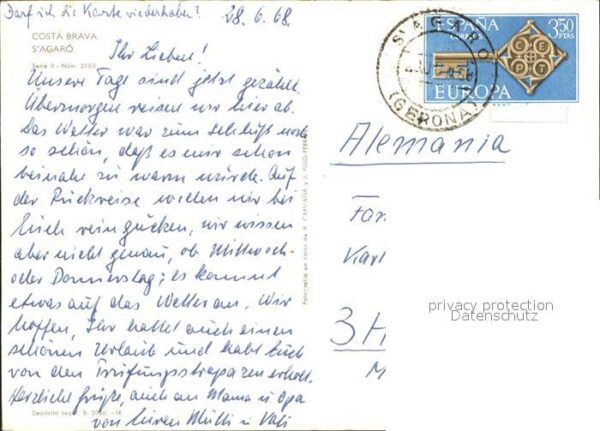 Darf ich die Karte wiederhaben?
28.6.68.
COSTA BRAVA
S'AGARÓ
Serie II - Núm. 2103
Ihr Lieben!
Unsere Tage sind jetzt gezählt.
Übermorgen reisen wir hier ab.
Das Wetter war zum Schluß noch
so schön, daß es mir schon
beinahe zu warm wurde. Auf
der Rückreise wollen wir bei
Euch reingucken, wir wissen
aber nicht genau, ob Mittwoch-
oder Donnerstag; es kommt
etwas auf das Wetter an. Wir
hoffen, Ihr hattet auch einen
schönen Urlaub und habt Euch
von den Prüfungsstrapazen erholt.
Herzliche Grüße, auch an Mama u. Opa
von Euren Mutti u. Vati
Depósito Legal B. -IX
Fotografía en color de A. CAMPAÑÁ y J. PUIG-FERRÁN
ESPAÑA
CORREOS
3,50
PTAS
CEPT
EUROPA
S'AGARO
(GERONA)
Alemania
Fa
Karl
3 H
M
privacy protection
Datenschutz